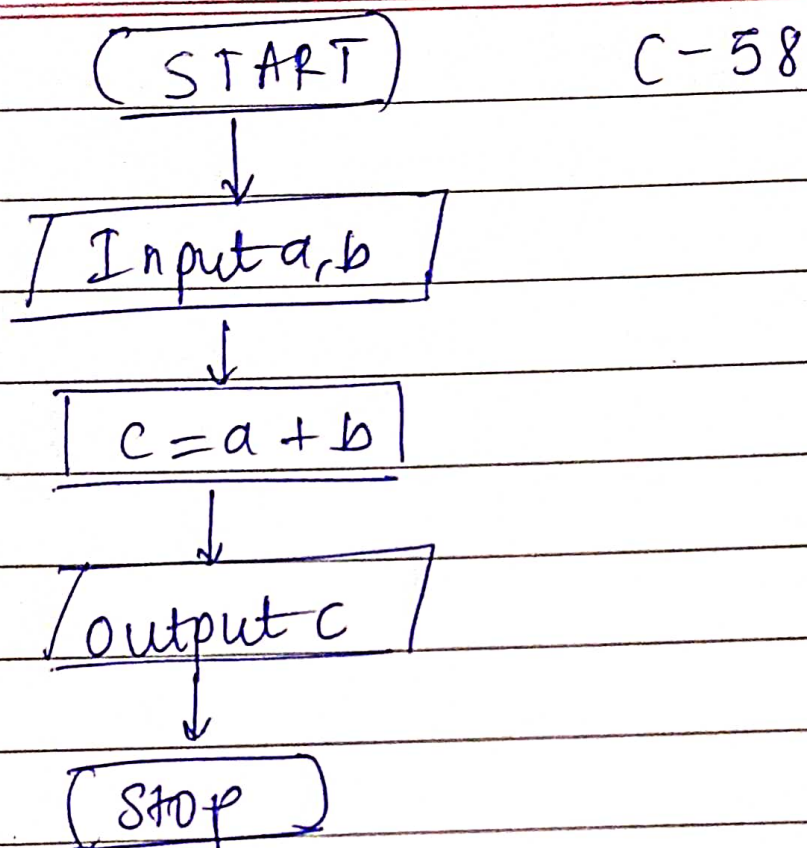 START C-58
Input a, b
c = a + b
output c
Stop